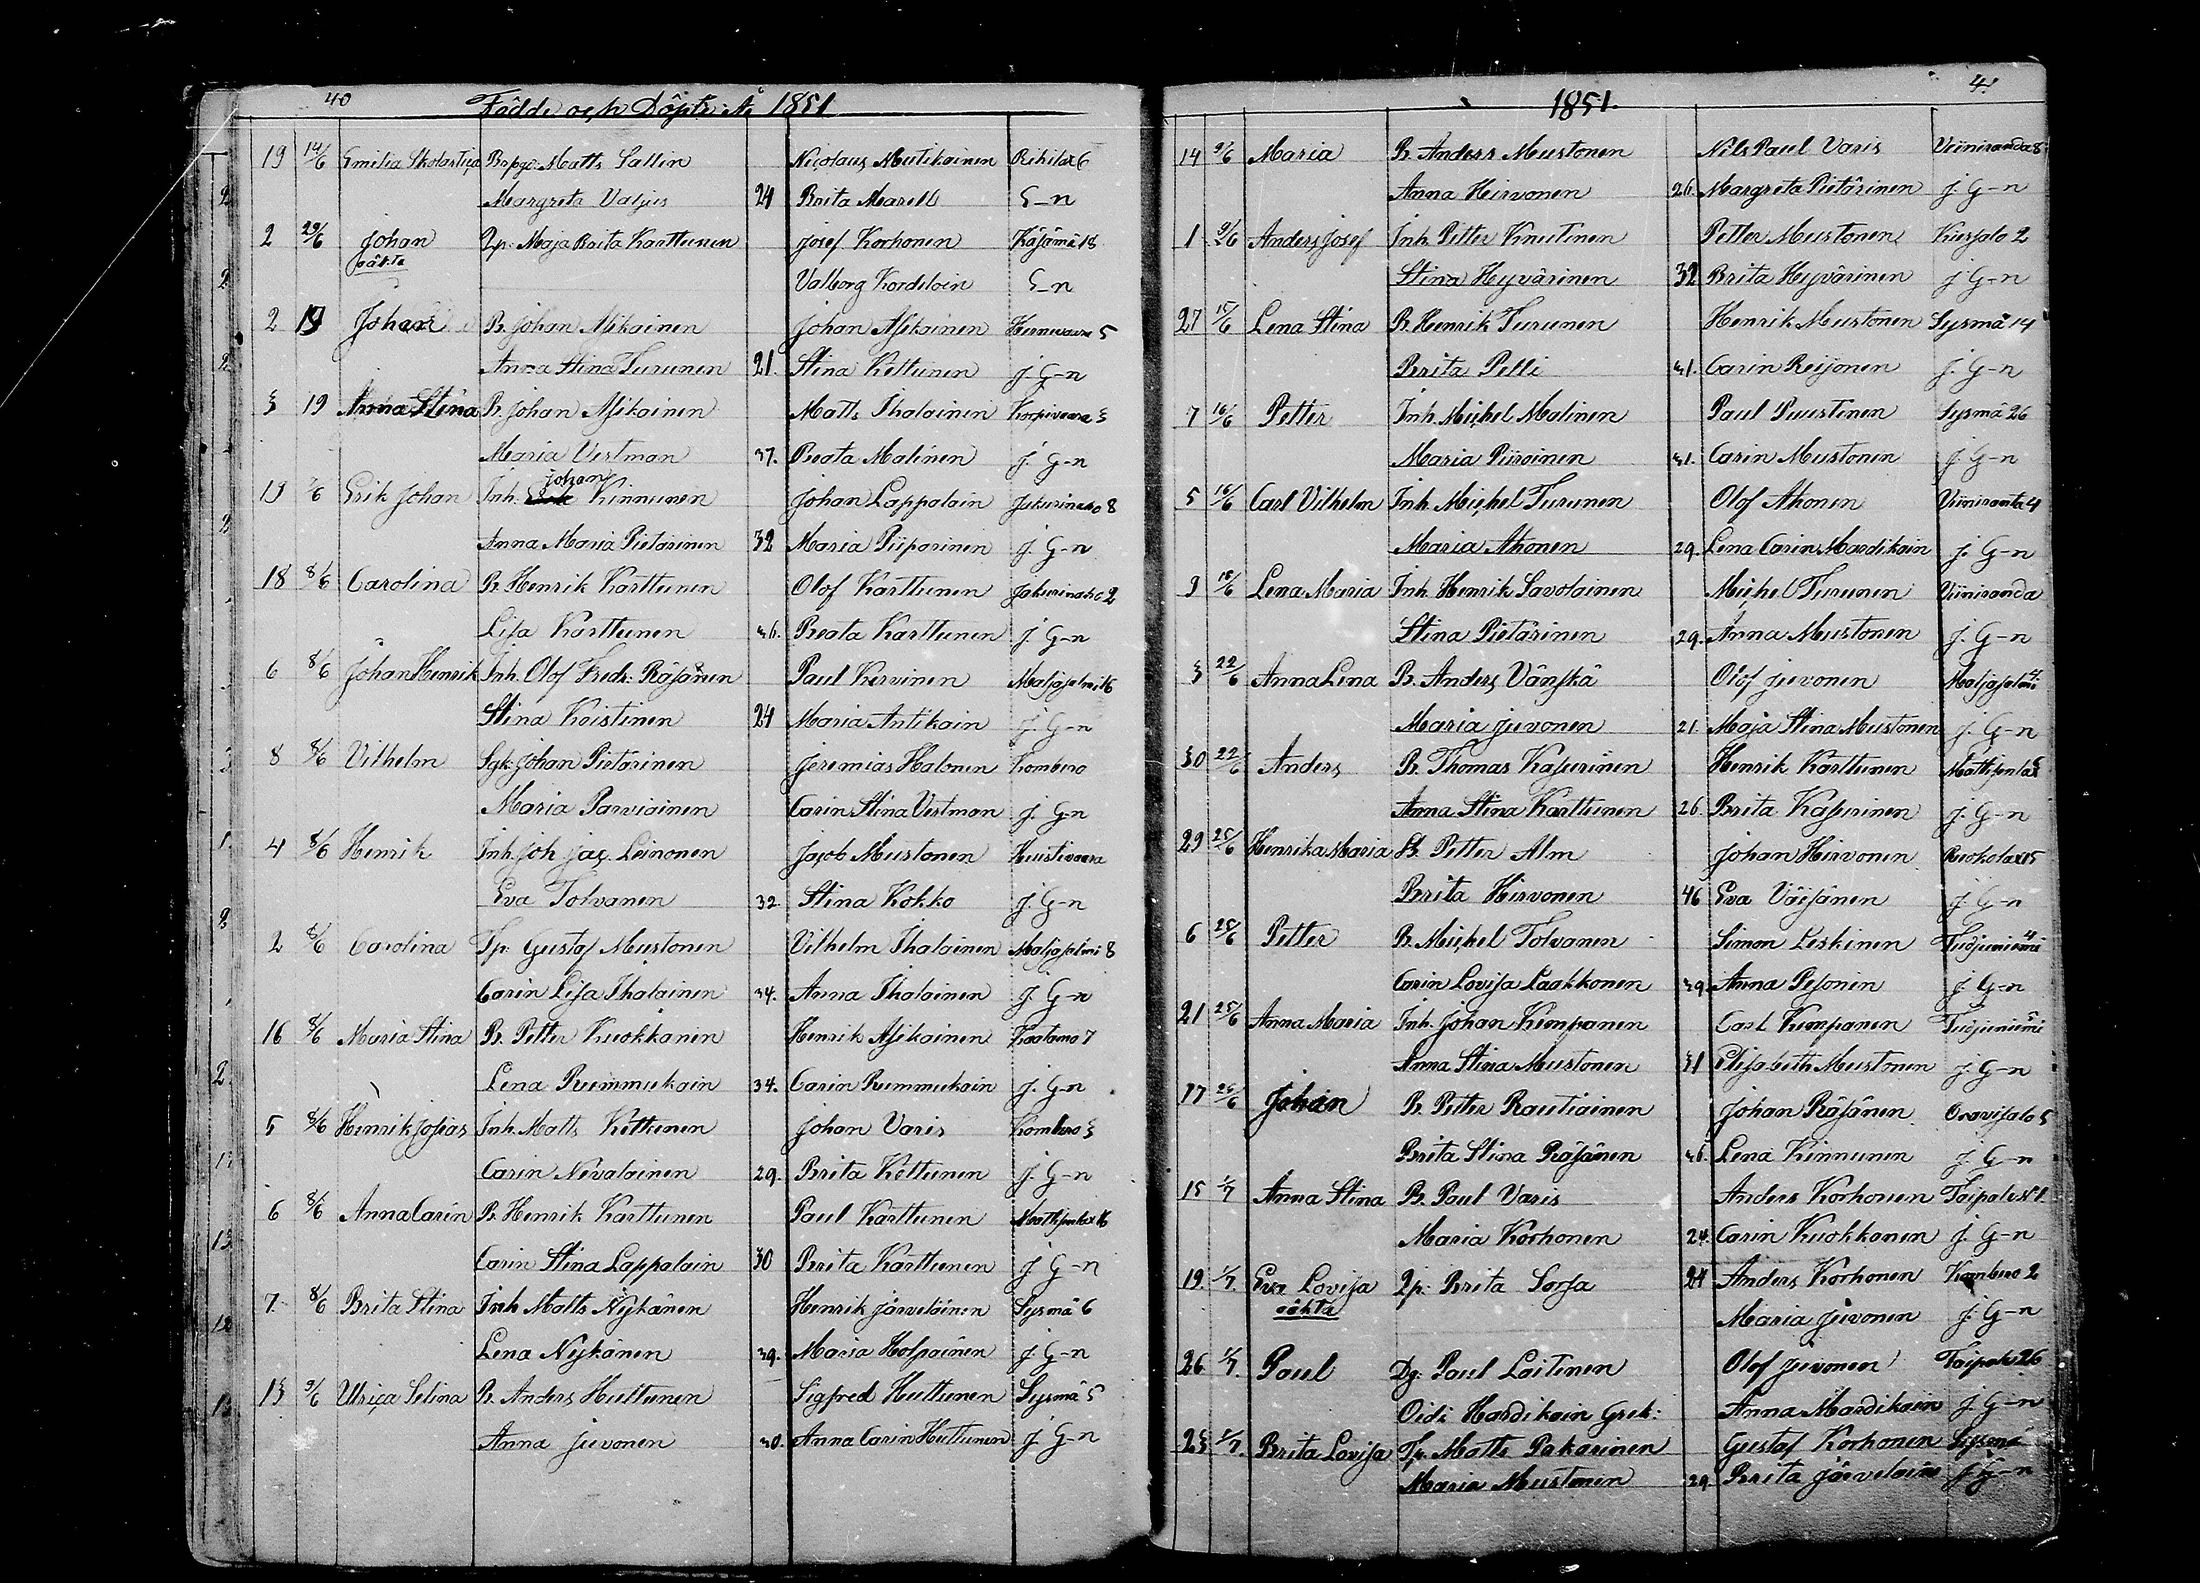 40 Födde och Döpte År 1851
19 14/6 Emilia Skolastica Brpgo: Matts Sallin Nicolaus Mutikainen Rihilax 6
Margreta Valjus 24 Brita Marell G-n
2 29/6 Johan 2p: Maja Brita Karttunen Josef Korhonen Käsämä 18
oäkta Valborg Kordelain G-n
2 19 Johan B. Johan Asikainen Johan Asikainen Hernevaara 5
Anna Stina Turunen 21. Stina Kettunen J. G-n
3 19 Anna Stina B. Johan Asikainen Matts Ihalainen Korpivaara 3
Maria Vestman 37. Beata Malinen J. G-n
Johan
13 7/6 Erik Johan Inh. Kinnunen Johan Lappalain Jakunaho 8
Anna Maria Pietarinen 32 Maria Piiparinen J. G-n
18 8/6 Carolina B. Henrik Karttunen Olof Karttunen 2
Lisa Karttunen 36. Beata Karttunen J. G-n
6 8/6 Johan Henrik Inh. Olof Fredr. Räsänen Paul Kervinen Maljasalmi 16
Stina Koistinen 24 Maria Antikain J. G-n
8 8/6 Vilhelm Sgk. Johan Pietärinen Jeremias Halonen Kombero
Maria Parviainen Carin Stina Vestman J. G-n
4 8/6 Henrik Inh. Joh. Jac. Leinonen Jacob Mustonen Huutivaara
Eva Tolvanen 32. Stina Kokko J. G-n
2 8/6 Carolina Tp. Gustaf Mustonen Vilhelm Ihalainen Maljasalmi 8
Carin Lisa Ihalainen 34. Anna Ihalainen J. G-n
16 8/6 Maria Stina B. Petter Kuokkanen Henrik Asikainen Kaatamo 7
Lena Rummukain 34. Carin Rummukain J. G-n
5 8/6 Henrik Josias Inh. Matts Kettunen Johan Varis Kombero 3
Carin Nevalainen 29. Brita Kettunen J. G-n
6 8/6 Anna Carin B. Henrik Karttunen Paul Karttunen Mattisenlax 16
Carin Stina Lappalain 30 Brita Karttunen J G-n
7 8/6 Brita Stina Inh Matts Nykänen Henrik Järveläinen Sysmä 6
Lena Nykänen 39. Maria Holpainen J G-n
13 9/6 Ulrica Selina B. Anders Huttunen Sigfred Huttunen Sysmä 5
Anna Juvonen 30. Anna Carin Huttunen J G-n
1851. 4
14 9/6 Maria B. Anders Mustonen Nils Paul Varis Viiniranda 8
Anna Hirvonen 26. Margreta Pietärinen J. G-n
1 9/6 Anders Josef Inh. Petter Knutinen Petter Mustonen Kuisalo 2
Stina Hyvärinen 32 Brita Hyvärinen J G-n
27 15/6 Lena Stina B. Henrik Turunen Henrik Mustonen Sysmä 14
Brita Pelli 31. Carin Reijonen J. G-n
7 16/6 Petter Inh. Michel Malinen Paul Puustinen Sysmä 26
Maria Piiroinen 31. Carin Mustonen J G-n
5 16/6 Carl Vilhelm Inh. Michel Turunen Olof Ahonen Viiniranta 4
Maria Ahonen 29. Lena Carin Mardikain J. G-n
9 18/6 Lena Maria Inh. Henrik Savolainen Michel Turunen Viiniranda
Stina Pietärinen 29. Anna Mustonen J. G-n
3 22/6 Anna Lena B. Anders Vänskä Olof Juvonen Maljasalmi 4
Maria Juvonen 21. Maja Stina Mustonen J. G-n
30 22/6 Anders B. Thomas Kasurinen Henrik Karttunen Mattisenlax 5
Anna Stina Karttunen 26. Brita Kasurinen J. G-n
29 25/6 Henrika Maria B. Petter Alm Johan Hirvonen Ruokolax 15
Brita Hirvonen 46 Eva Väisänen J. G-n
6 25/6 Petter B. Michel Tolvanen Simon Leskinen Tuojuniemi 4
Carin Lovisa Laakkonen 39. Anna Pesonen J G-n
21 25/6 Anna Maria Inh. Johan Kumpanen Carl Kumpanen Tuojuniemi 5
Anna Stina Mustonen 31 Elisabeth Mustonen J. G-n
17 25/6 Johan B. Petter Rautiainen Johan Räsänen Oravisalo 5
Brita Stina Räsänen 36. Lena Kinnunen J. G-n
15 1/7 Anna Stina B. Paul Varis Anders Korhonen Taipale
Maria Korhonen 24. Carin Kuokkanen J. G-n
19 1/7. Eva Lovisa 2p. Brita Sorsa 24 Anders Korhonen Kombero 2
oäkta Maria Juvonen J. G-n
26 1/7. Paul Dg. Paul Laitinen Olof Juvonen Taipale 26
Oidi Hardikain Grek: Anna Mardikain J. G-n
23 1/7. Brita Lovisa Tp. Matts Pakarinen Gustaf Korhonen Sysmä
Maria Mustonen 29. Brita Järveläin J G-n